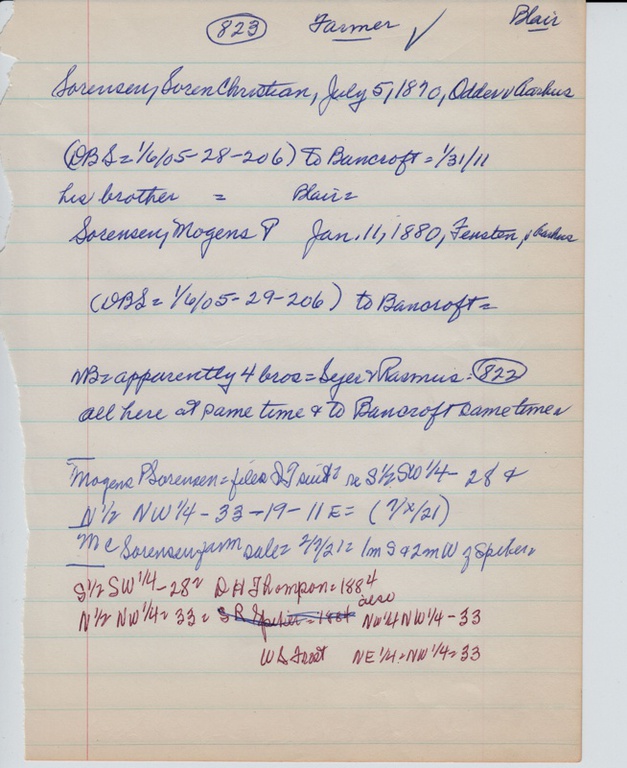 823 Farmer ✓ Blair
Sorensen, Soren Christian, July 5, 1870, Odder v Aarhus
(DBS = 1/6/05-28-206) to Bancroft = 1/31/11
his brother = Blair =
Sorensen, Mogens P Jan. 11, 1880, Fensten, v Aarhus
(DBS = 1/6/05-29-206) to Bancroft =
NB = apparently 4 bros = Sejer & Rasmus = 822
all here at same time & to Bancroft same time =
Mogens P Sorensen = files QT suit = re S½ SW ¼ - 28 &
N½ NW ¼ - 33-19-11 E =
M C Sorensen farm sale = = 1m S & 2m W of Spiker =
S½ SW ¼ - 28 = D H Thompson = 1884
N½ NW ¼ = 33 = S R Spiker = 1884 also NW ¼ NW ¼ - 33
W S Frost NE ¼ = NW ¼ = 33